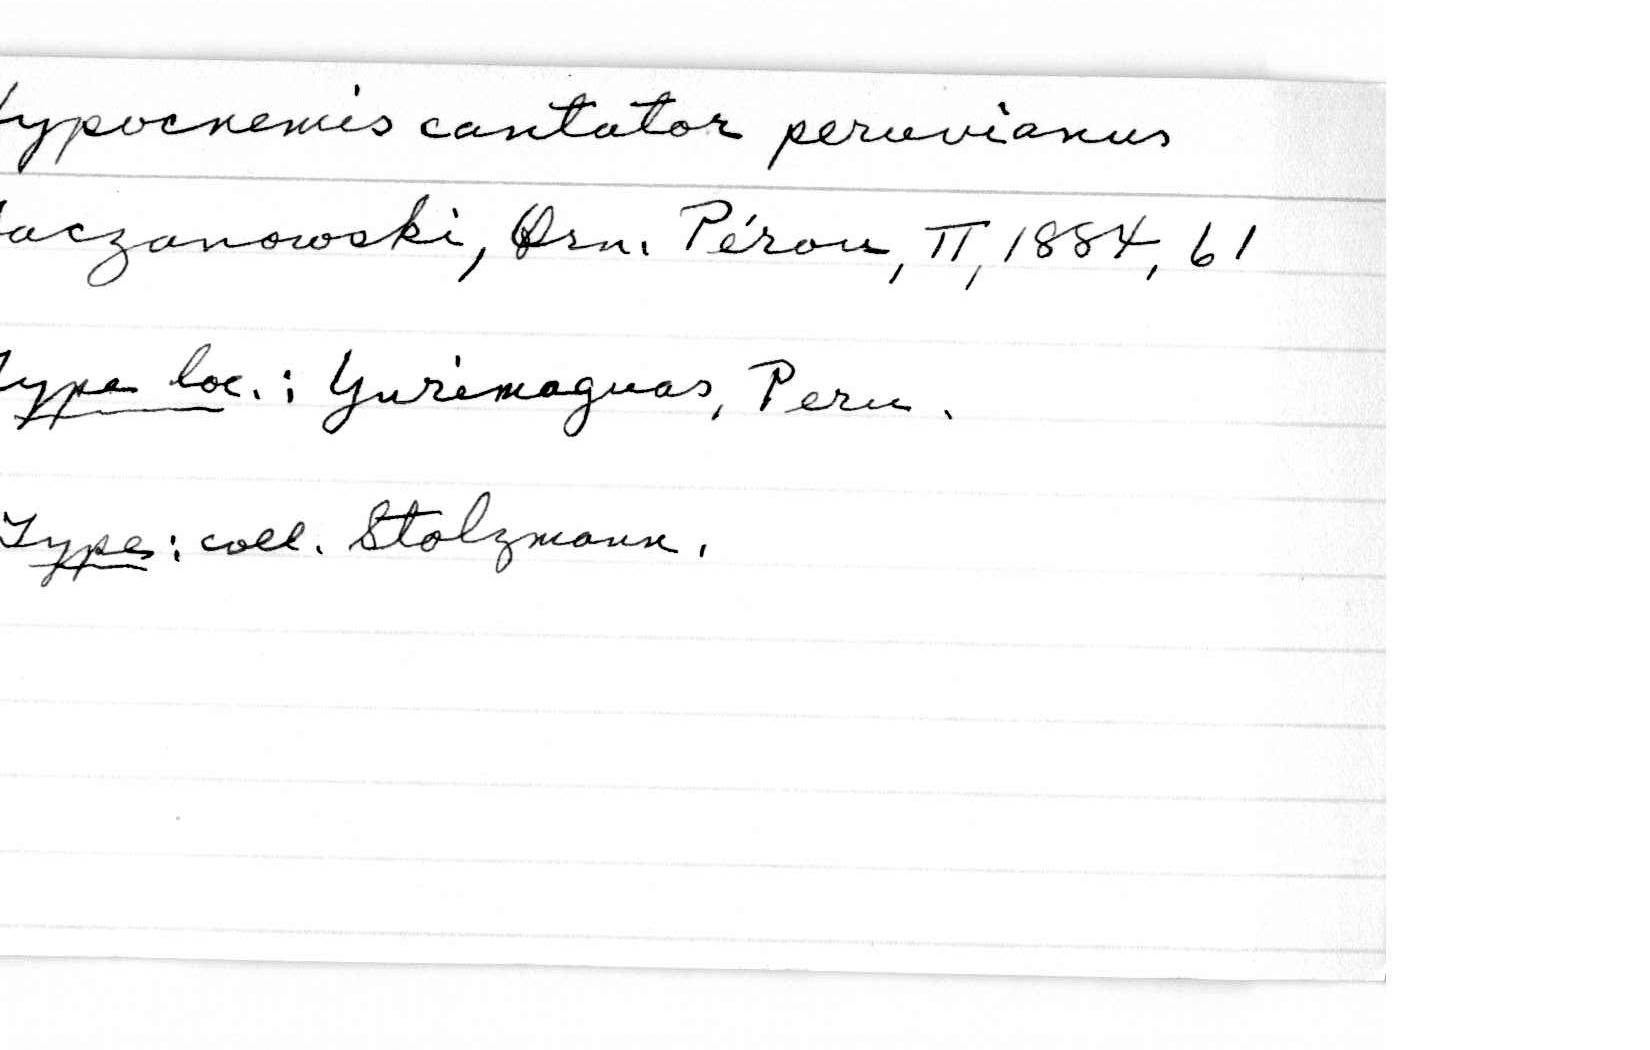 ypocnemis cantator peruvianus
aczanowski, Orn. Pérou, II, 1884, 61
ype loc.: Yurimaguas, Peru.
Type: coll. Stolzmann.